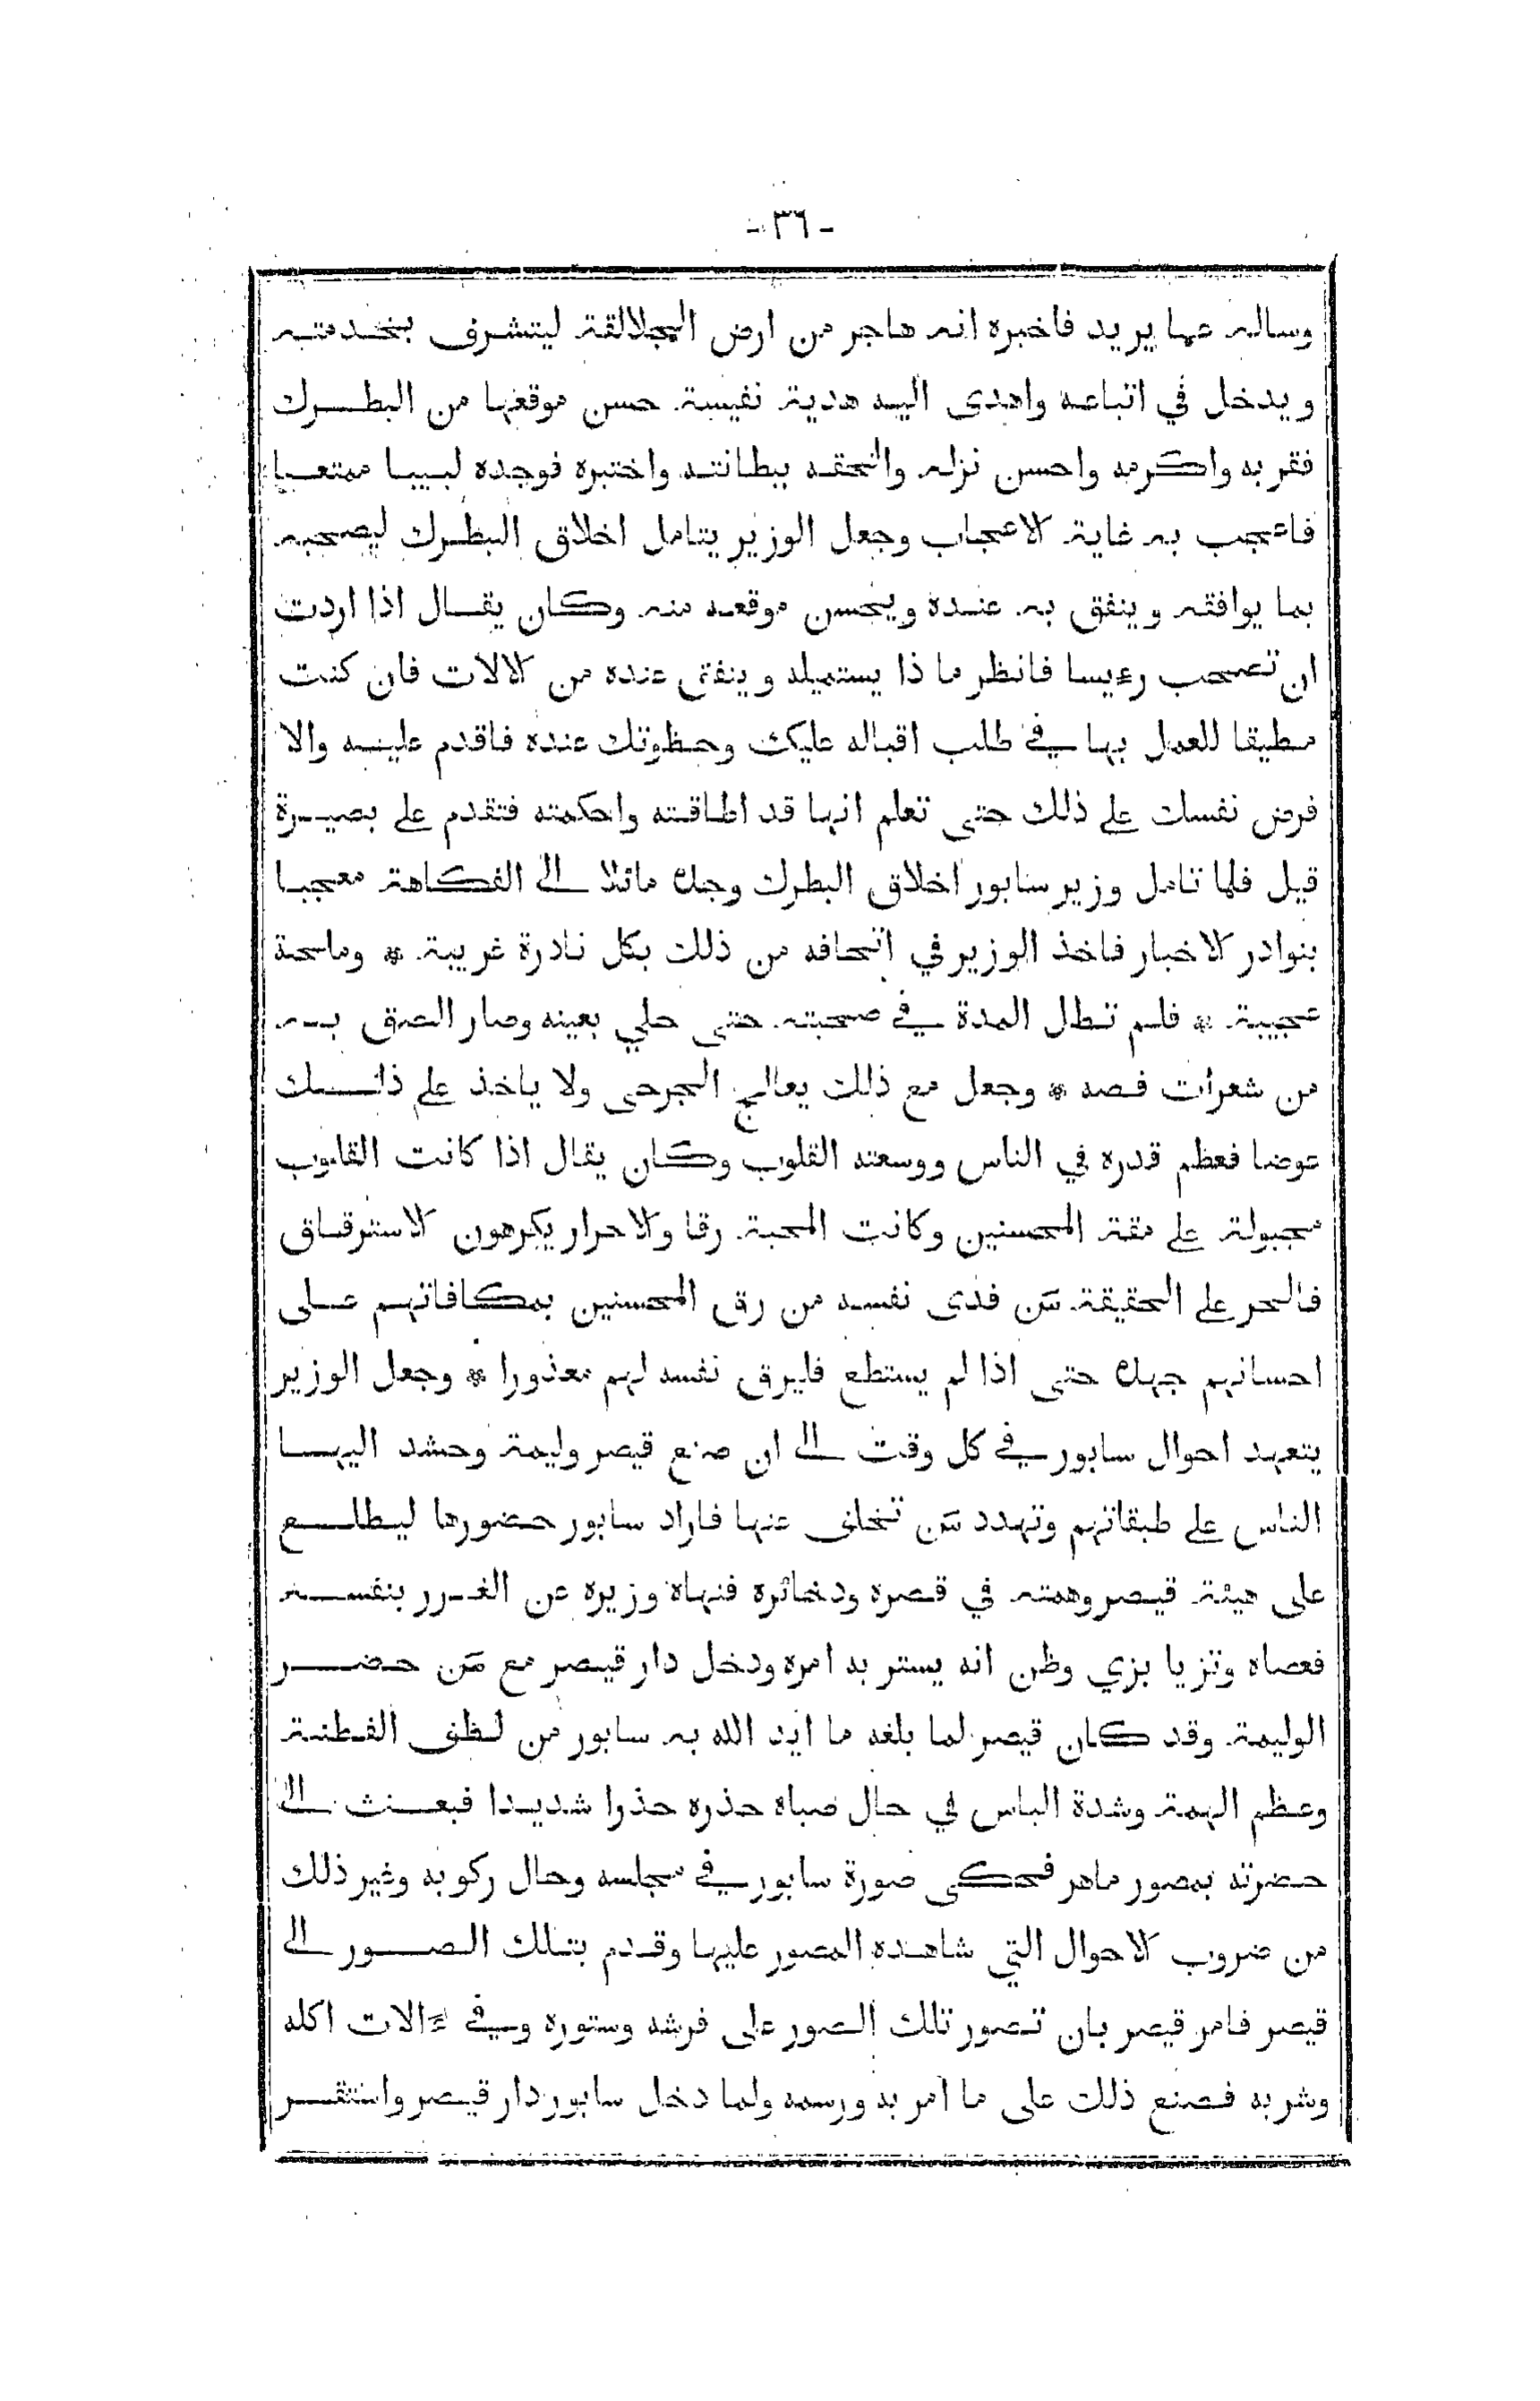 - ٣٦ -
وساله عما يريد فاخبره انه هاجر من ارض الجلالقة ليتشرف بخدمته
ويدخل في اتباعه واهدى اليه هدية نفيسة حسن موقعها من البطرك
فقربه واكرمه واحسن نزله والحقه ببطانته واختبره فوجده لبيبا ممتعا
فاعجب به غاية الاعجاب وجعل الوزير يتامل اخلاق البطرك ليصحبه
بما يوافقه وينفق به عنده ويحسن موقعه منه وكان يقال اذا اردت
ان تصحب رءيسا فانظر ما ذا يستميله وينفق عنده من الالات فان كنت
مطيقا للعمل بها في طلب اقباله عليك وحظوتك عنده فاقدم عليه والا
فرض نفسك على ذلك حتى تعلم انها قد اطاقته واحكمته فتقدم على بصيرة
قيل فلما تامل وزير سابور اخلاق البطرك وجده مائلا الى الفكاهة معجبا
بنوادر الاخبار فاخذ الوزير في اتحافه من ذلك بكل نادرة غريبة * وملحة
عجيبة * فلم تطل المدة في صحبته حتى حلي بعينه وصار الصق به
من شعرات قصه * وجعل مع ذلك يعالج الجرحى ولا ياخذ على ذلك
عوضا فعظم قدره في الناس ووسعته القلوب وكان يقال اذا كانت القلوب
مجبولة على مقة المحسنين وكانت المحبة رقا والاحرار يكرهون الاسترقاق
فالحر على الحقيقة مَن فدى نفسه من رق المحسنين بمكافاتهم على
احسانهم جهده حتى اذا لم يستطع فليرق نفسه لهم معذورا * وجعل الوزير
يتعهد احوال سابور في كل وقت الى ان صنع قيصر وليمة وحشد اليها
الناس على طبقاتهم وتهدد مَن تخلف عنها فاراد سابور حضورها ليطلع
على هيئة قيصر وهمته في قصره وذخائره فنهاه وزيره عن الغرر بنفسه
فعصاه وتزيا بزي وظن انه يستر به امره ودخل دار قيصر مع مَن حضر
الوليمة وقد كان قيصر لما بلغه ما ايد الله به سابور من لطف الفطنة
وعظم الهمة وشدة الباس في حال صباه حذره حذرا شديدا فبعث الى
حضرته بمصور ماهر فحكى صورة سابور في مجلسه وحال ركوبه وغير ذلك
من ضروب الاحوال التي شاهده المصور عليها وقدم بتلك الصور الى
قيصر فامر قيصر بان تصور تلك الصور على فرشه وستوره وفي ءالات اكله
وشربه فصنع ذلك على ما امر به ورسمه ولما دخل سابور دار قيصر واستقر